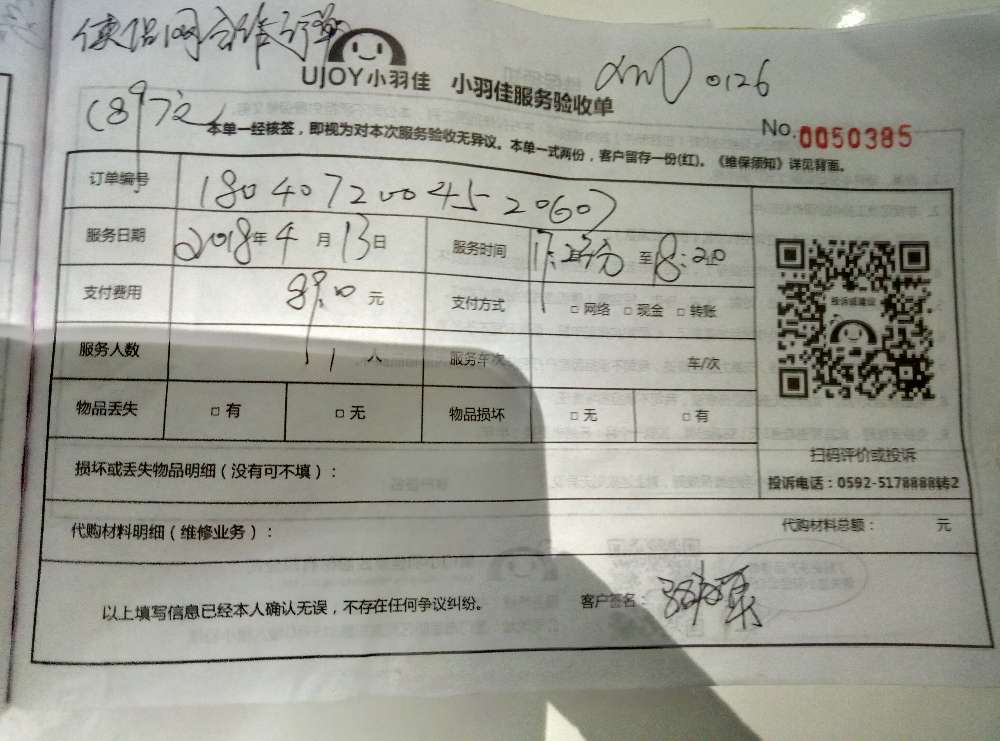 合作订单
UJOY小羽佳 小羽佳服务验收单
XMD 0126
(89元)
No.0050385
本单一经核签，即视为对本次服务验收无异议。本单一式两份，客户留存一份(红)。《维保须知》详见背面。
订单编号 1804072004520607
服务日期 2018年4月13日 服务时间 至18:20
支付费用 89.0元 支付方式 □网络 □现金 □转账
投诉或建议
服务人数 1人 服务车次 车/次
物品丢失 □有 □无 物品损坏 □无 □有
扫码评价或投诉
损坏或丢失物品明细（没有可不填）：
投诉电话：0592-5178888转2
代购材料明细（维修业务）： 代购材料总额： 元
以上填写信息已经本人确认无误，不存在任何争议纠纷。 客户签名：